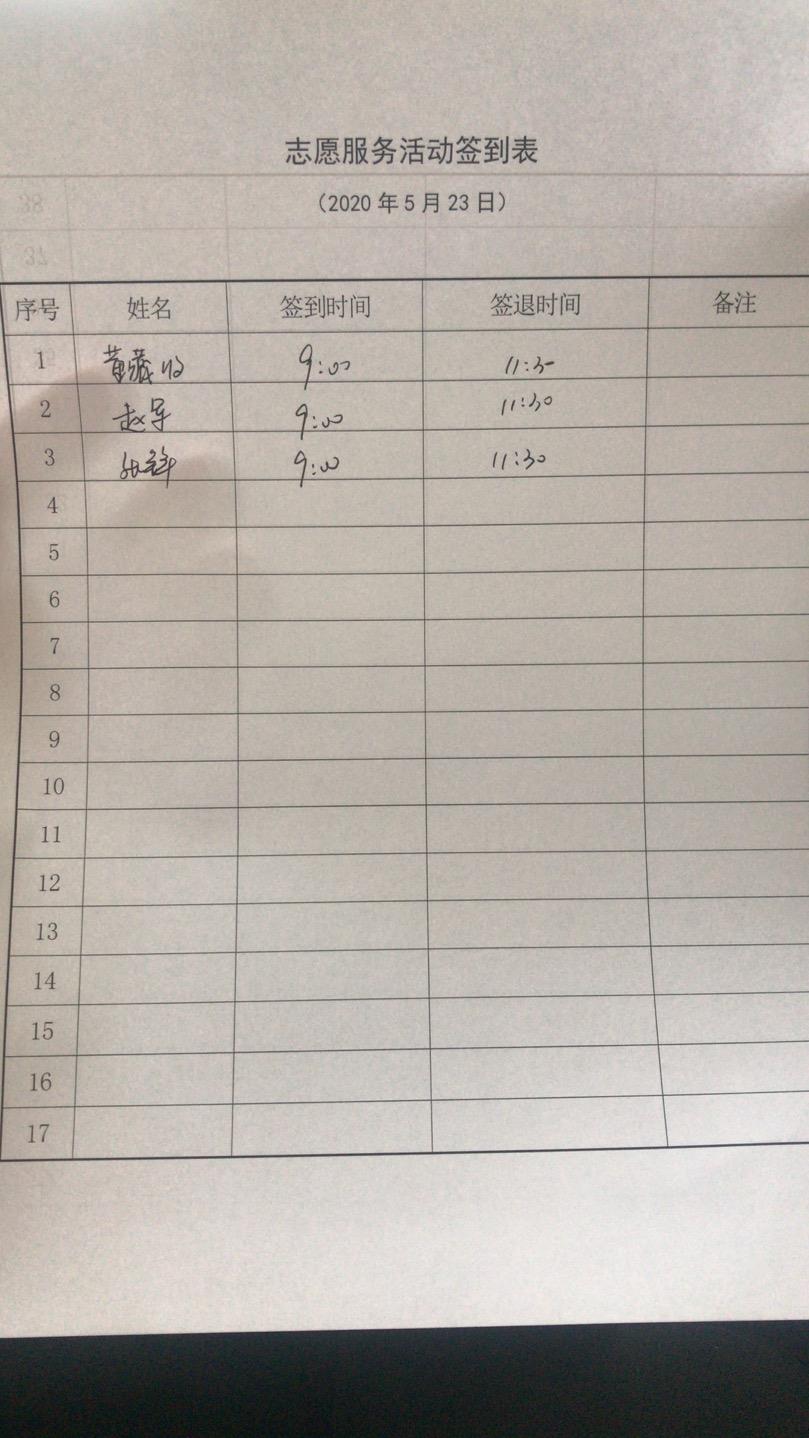 志愿服务活动签到表
（2020 年 5 月 23 日）
38
37
序号 姓名 签到时间 签退时间 备注
1 黄藏 9:00 11:30
2 赵军 9:00 11:30
3 9:00 11:30
4
5
6
7
8
9
10
11
12
13
14
15
16
17